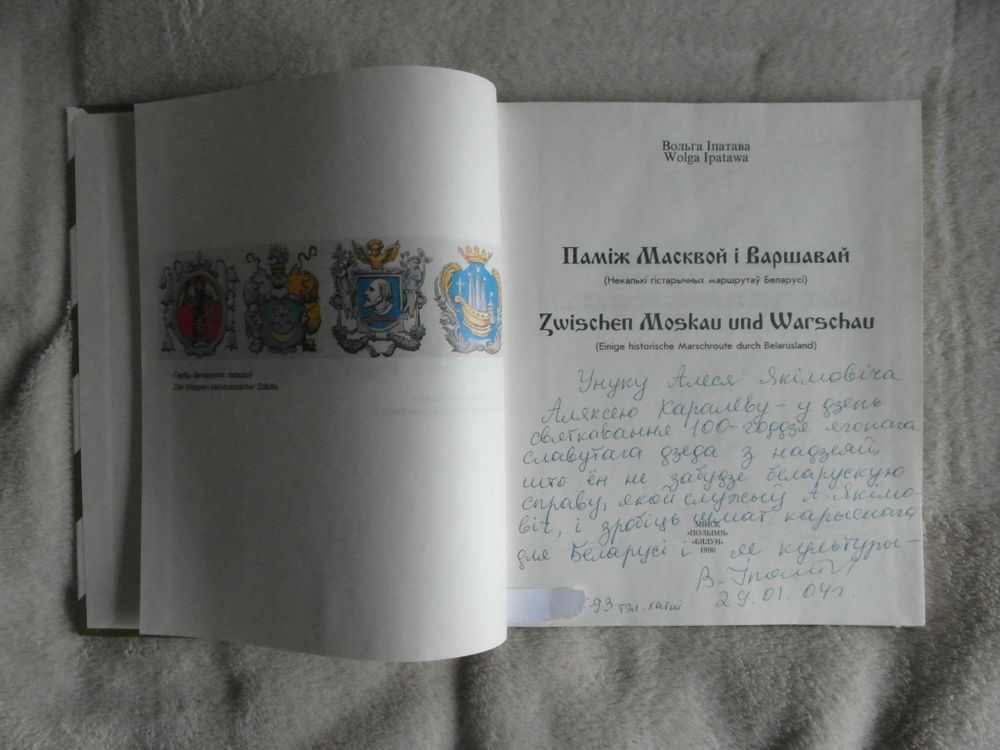 Гербы беларускіх гарадоў
Die Wappen belorussischer Städte
Вольга Іпатава
Wolga Ipatawa
Паміж Масквой і Варшавай
(Некалькі гістарычных маршрутаў Беларусі)
Zwischen Moskau und Warschau
(Einige historische Marschroute durch Belarusland)
Унуку Алеся Якімовіча
Аляксею Каралёву – у дзень
святкавання 100-годдзя ягонага
славутага дзеда з надзеяй,
што ён не забудзе беларускую
справу, якой служыў А. Якімо-
віч, і зробіць шмат карыснага
для Беларусі і яе культуры –
МІНСК
«ПОЛЫМЯ»
«БЯЛУН»
1996
В. Іпатава
29.01.04г.
-93 тэл. хатні